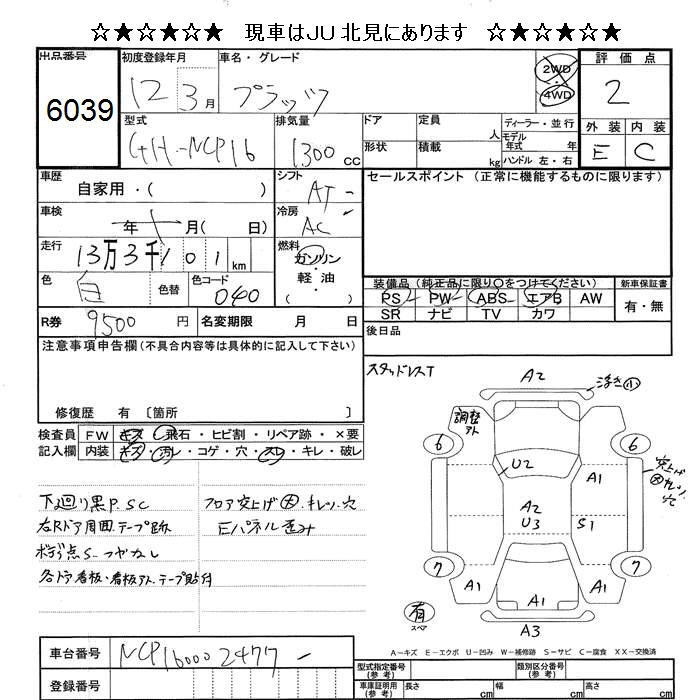 ☆★☆★☆★ 現車はJU 北見にあります ☆★☆★☆★
出品番号 初度登録年月 車名・グレード 2WD 評価点
6039 12 3月 プラッツ 4WD 2
型式 排気量 ドア 定員 人 ディーラー・並行 外装 内装
GH-NCP16 1300 cc 形状 積載 kg モデル年式 年 ハンドル 左・右 E C
車歴 自家用・( ) シフト AT セールスポイント (正常に機能するものに限ります)
車検 年 月( 日) 冷房 AC
走行 13万3千101km 燃料 ガソリン・軽油 ( )
色 白 色替 色コード 040 装備品 (純正品に限り○をつけてください) 新車保証書
PS PW ABS エアB AW 有・無
SR ナビ TV カワ
R券 9500円 名変期限 月 日 後日品
注意事項申告欄 (不具合内容等は具体的に記入して下さい)
スタッドレスT
修復歴 有 〔箇所 〕
検査員 FW キズ・飛石・ヒビ割・リペア跡・×要
記入欄 内装 キズ・汚レ・コゲ・穴・スレ・キレ・破レ
下廻り黒P.SC フロア突上げ大キレツ.穴
右Rドア周囲テープ跡 Eパネル歪み
ボディ点S-つやなし
各ドア看板・看板アト.テープ貼付
A2 浮き小
調整アト
6 6
U2 A1 突上げ大キレツ穴
A2
U3 S1
7 7
A1 A1 A1
有 スペア A3
A-キズ E-エクボ U-凹み W-補修跡 S-サビ C-腐食 XX-交換済
車台番号 NCP160002477 型式指定番号(参考) 類別区分番号(参考)
登録番号 車庫証明用(参考) 長さ cm 幅 cm 高さ cm